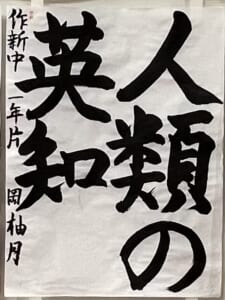 人類の
英知
作新中 一年 片岡柚月